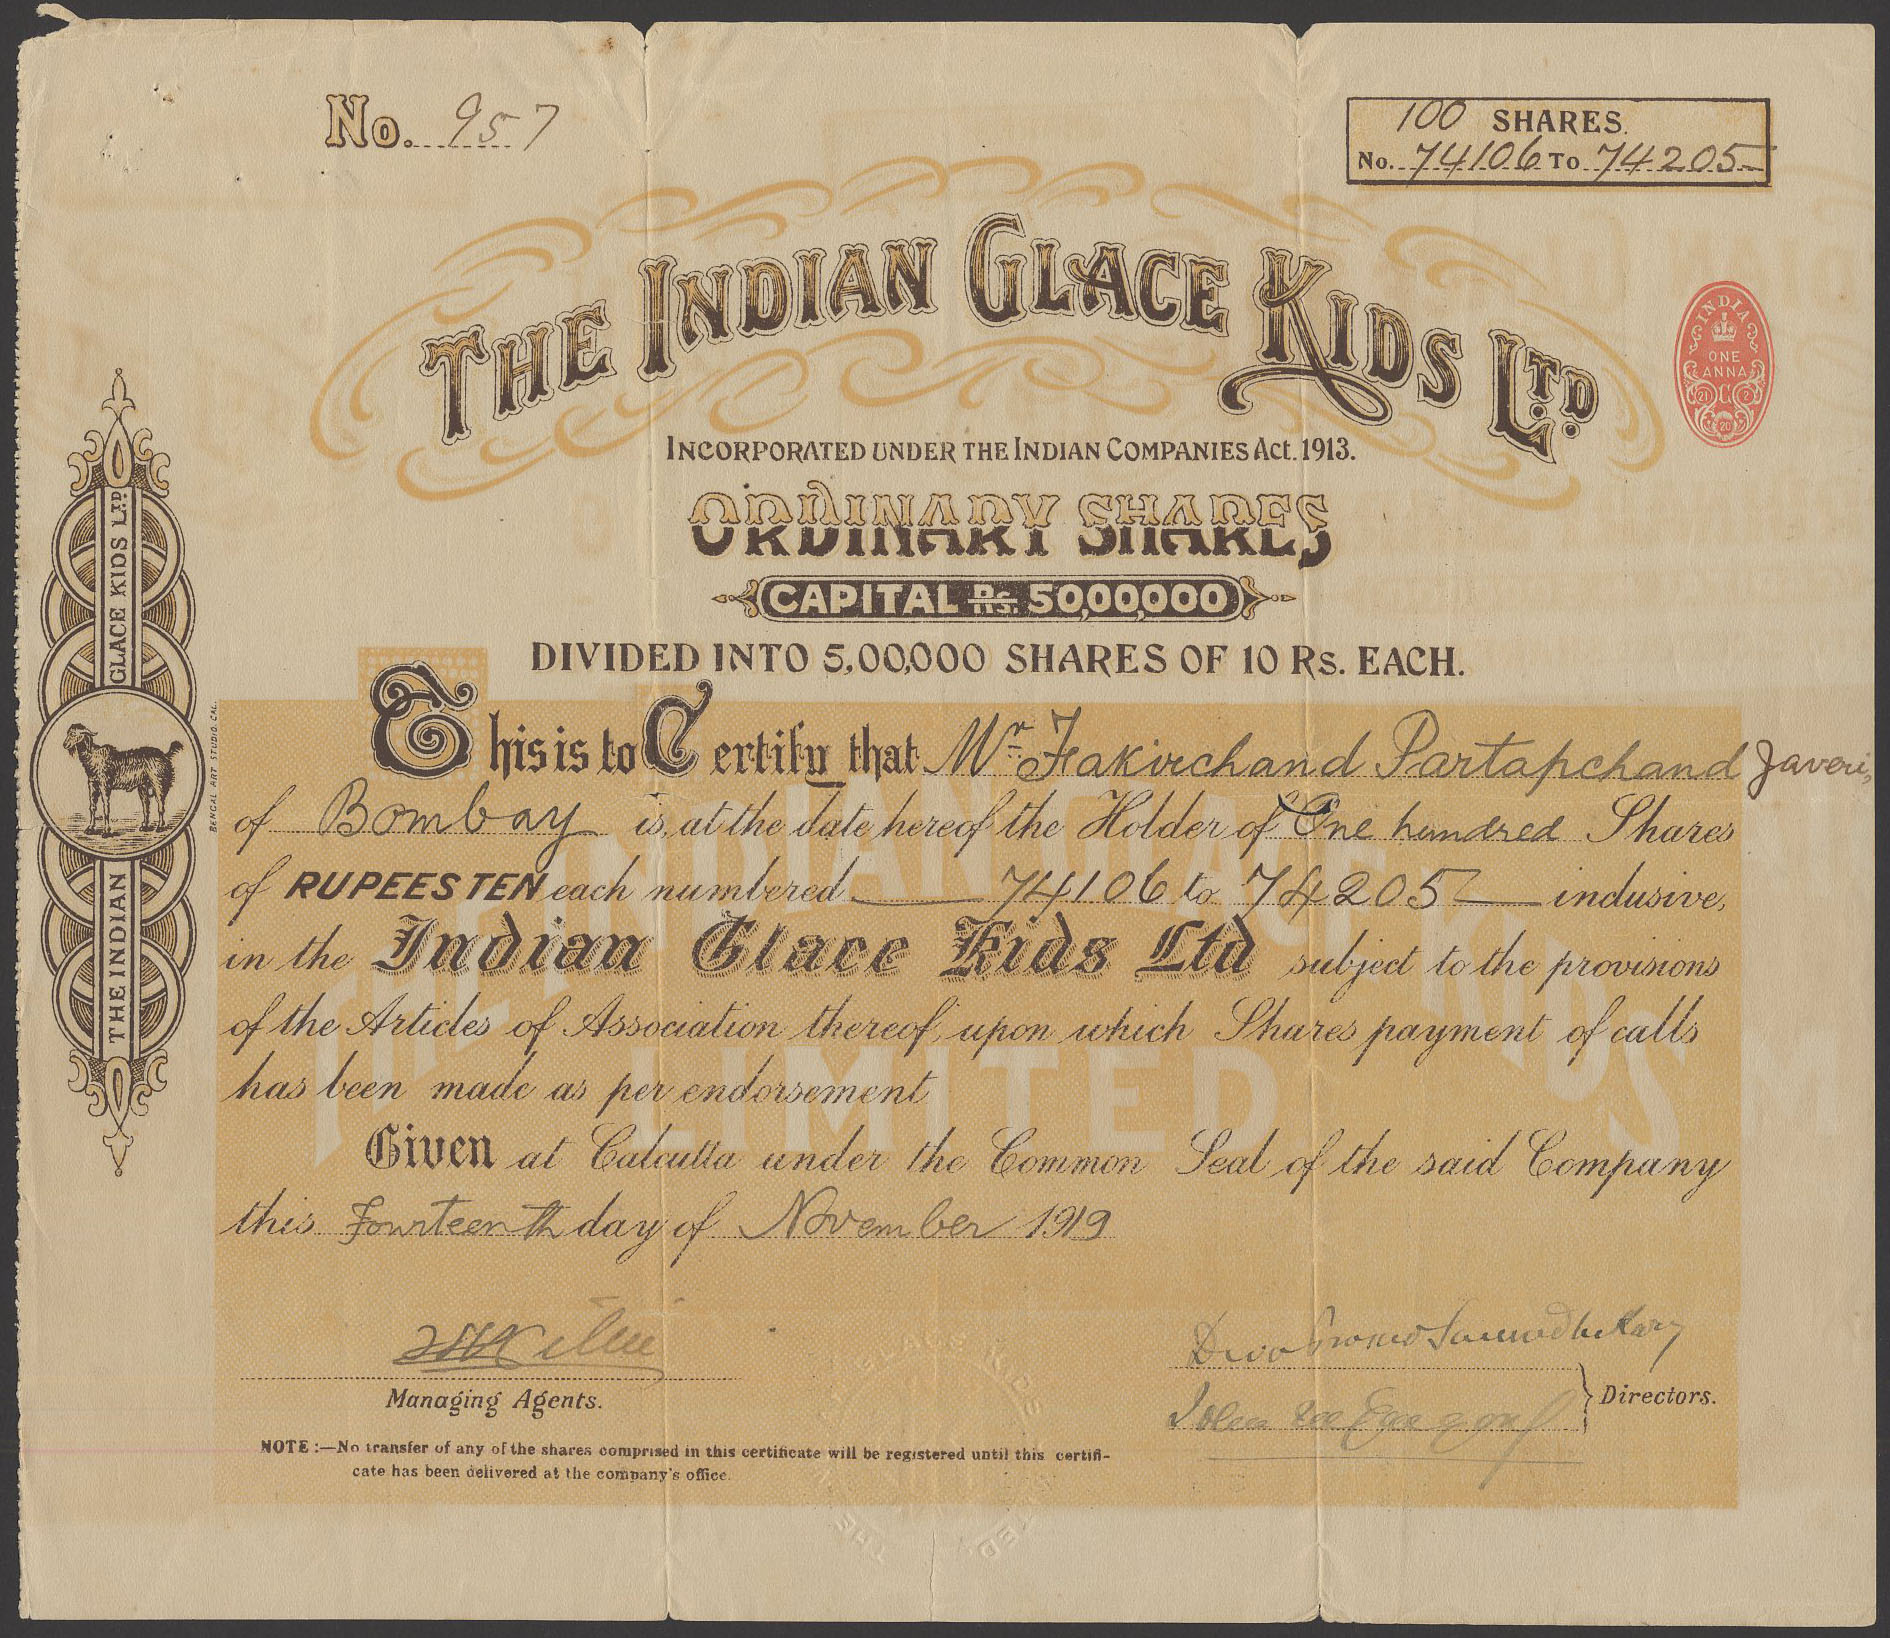 No. 957
100 SHARES.
No. 74106 TO 74205
THE INDIAN GLACE KIDS LTD.
INDIA
ONE
ANNA
C
21 2
20
INCORPORATED UNDER THE INDIAN COMPANIES ACt. 1913.
ORDINARY SHARES
CAPITAL Rs. 50,00,000
DIVIDED INTO 5,00,000 SHARES OF 10 Rs. EACH.
THE INDIAN GLACE KIDS LTD
BENGAL ART STUDIO. CAL.
This is to Certify that Mr. Fakirchand Partapchand Javeri,
of Bombay is, at the date hereof the Holder of One hundred Shares
of RUPEES TEN each numbered 74106 to 74205 inclusive,
in the Indian Glace Kids Ltd subject to the provisions
of the Articles of Association thereof, upon which Shares payment of calls
has been made as per endorsement
Given at Calcutta under the Common Seal of the said Company
this Fourteenth day of November 1919
Managing Agents.
Directors.
NOTE :—No transfer of any of the shares comprised in this certificate will be registered until this certifi-
cate has been delivered at the company's office.
THE INDIAN GLACE KIDS
LIMITED.